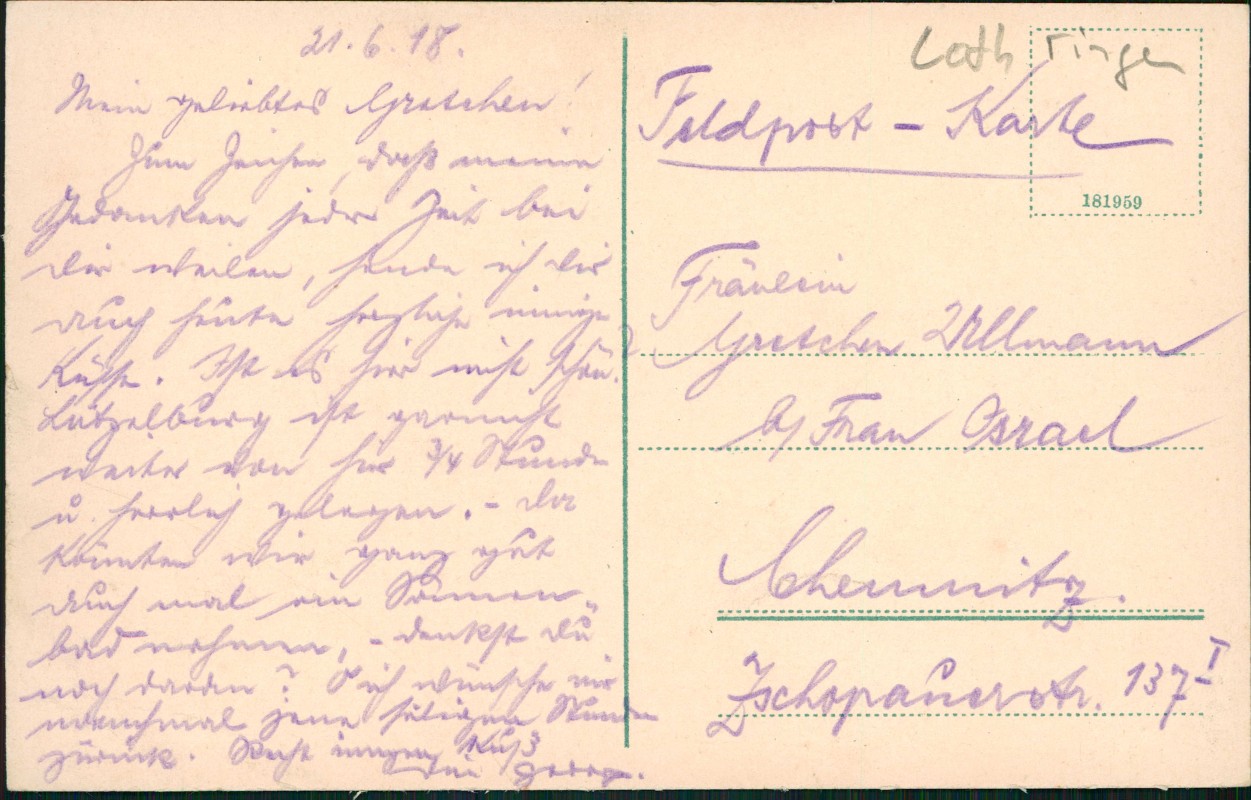 21.6.18.
Mein geliebtes Gretchen!
Zum Zeichen, daß meine
Gedanken jede Zeit bei
dir weilen, sende ich dir
auch heute herzliche innige
Küsse. Ist es hier nicht schön?
Lützelburg ist garnicht
weiter von hier ¾ Stunde
u. herrlich gelegen. - Da
könnten wir ganz gut
auch mal ein Sonnen-
bad nehmen, - denkst du
noch daran? O ich wünsche mir
manchmal jene seligen Stunden
zurück. Recht innigen Kuß
Dein Georg.
Loth ringen
Feldpost - Karte
181959
Fräulein
Gretchen Ullmann
b/ Frau Israel
Chemnitz.
Zschopauerstr. 137 I